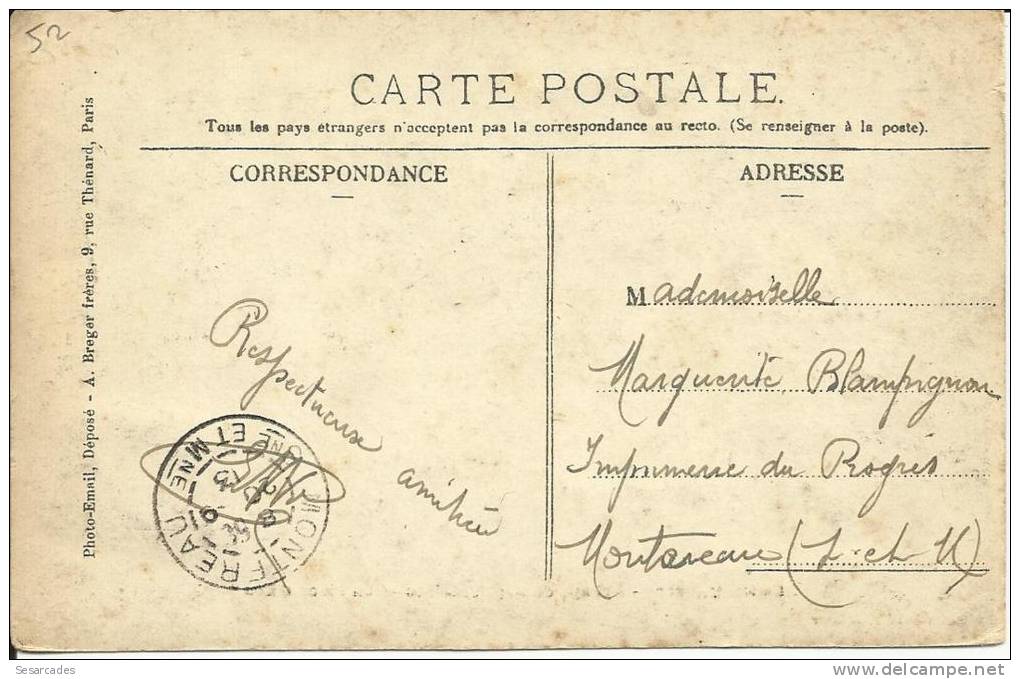 52
CARTE POSTALE.
Tous les pays étrangers n'acceptent pas la correspondance au recto. (Se renseigner à la poste).
CORRESPONDANCE
Respectueuse
amitié
ADRESSE
Mademoiselle
Marguerite Blampignon
Imprimerie du Progrès
Montereau (S. et M)
Photo-Email, Déposé - A. Breger frères, 9, rue Thénard, Paris
MONTEREAU
NE ET MNE
Sesarcades
www.delcampe.net